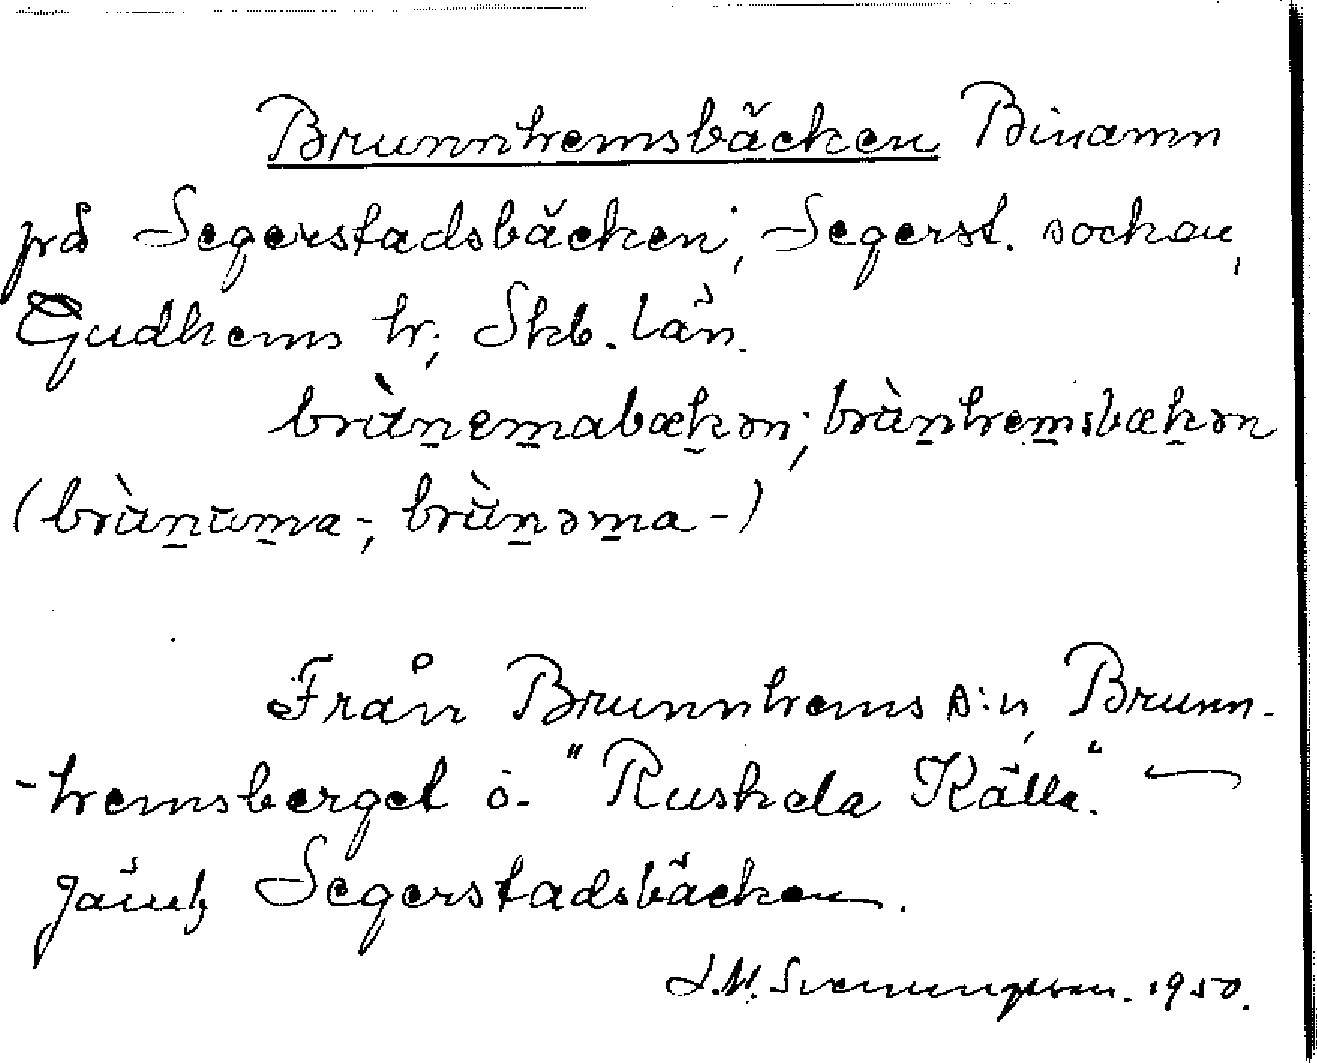 Brunnhemsbäcken Binamn
på Segerstadsbäcken, Segerst. socken,
Gudhems hr, Skb. län.
brùn̲em̲abæk̲ən; brùn̲hem̲sbæk̲ən
(brùn̲um̲a-, brùn̲əm̲a-)
Från Brunnhems s:n, Brunn-
-hemsberget o. "Ruskela Källa." —
Jämf Segerstadsbäcken.
1950.